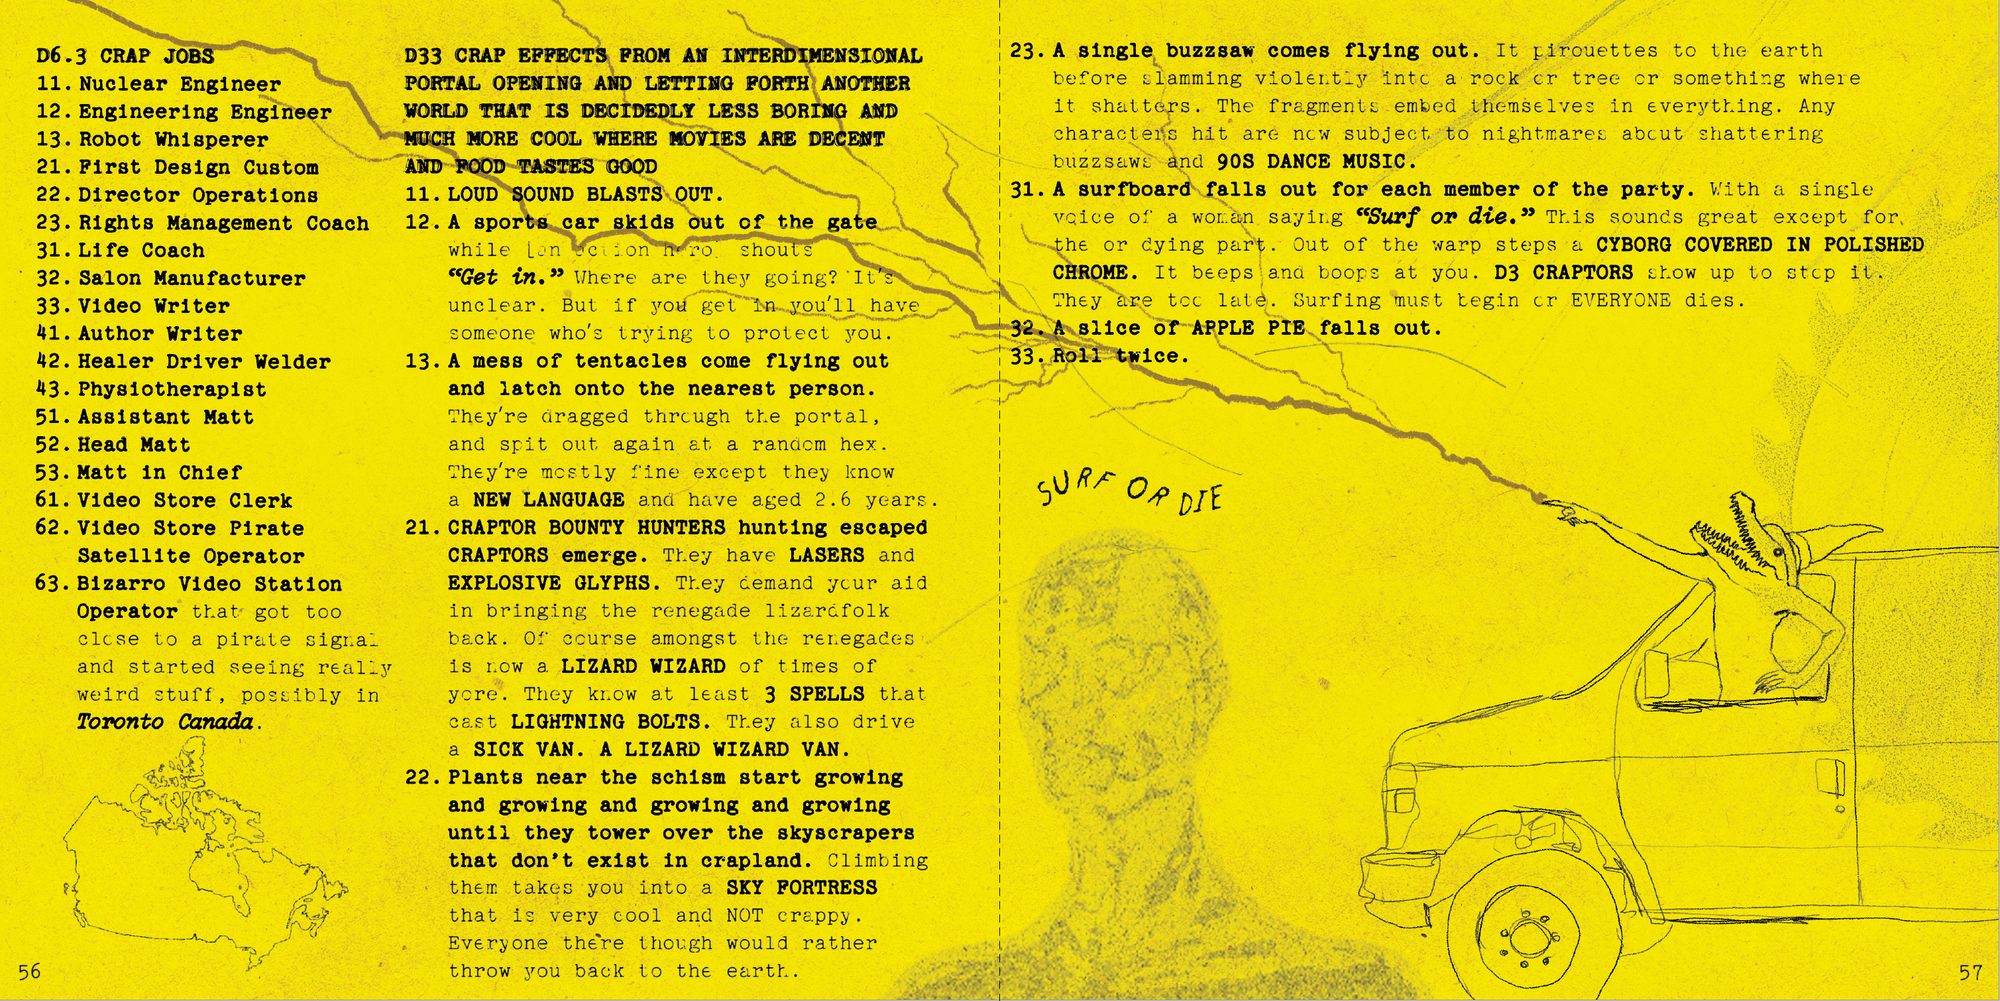 D6.3 CRAP JOBS
11. Nuclear Engineer
12. Engineering Engineer
13. Robot Whisperer
21. First Design Custom
22. Director Operations
23. Rights Management Coach
31. Life Coach
32. Salon Manufacturer
33. Video Writer
41. Author Writer
42. Healer Driver Welder
43. Physiotherapist
51. Assistant Matt
52. Head Matt
53. Matt in Chief
61. Video Store Clerk
62. Video Store Pirate
Satellite Operator
63. Bizarro Video Station
Operator that got too
close to a pirate signal
and started seeing really
weird stuff, possibly in
Toronto Canada.
56
D33 CRAP EFFECTS FROM AN INTERDIMENSIONAL
PORTAL OPENING AND LETTING FORTH ANOTHER
WORLD THAT IS DECIDEDLY LESS BORING AND
MUCH MORE COOL WHERE MOVIES ARE DECENT
AND FOOD TASTES GOOD
11. LOUD SOUND BLASTS OUT.
12. A sports car skids out of the gate
while [an action hero] shouts
“Get in.” Where are they going? It's
unclear. But if you get in you'll have
someone who's trying to protect you.
13. A mess of tentacles come flying out
and latch onto the nearest person.
They're dragged through the portal,
and spit out again at a random hex.
They're mostly fine except they know
a NEW LANGUAGE and have aged 2.6 years.
21. CRAPTOR BOUNTY HUNTERS hunting escaped
CRAPTORS emerge. They have LASERS and
EXPLOSIVE GLYPHS. They demand your aid
in bringing the renegade lizardfolk
back. Of course amongst the renegades
is now a LIZARD WIZARD of times of
yore. They know at least 3 SPELLS that
cast LIGHTNING BOLTS. They also drive
a SICK VAN. A LIZARD WIZARD VAN.
22. Plants near the schism start growing
and growing and growing and growing
until they tower over the skyscrapers
that don't exist in crapland. Climbing
them takes you into a SKY FORTRESS
that is very cool and NOT crappy.
Everyone there though would rather
throw you back to the earth.
23. A single buzzsaw comes flying out. It pirouettes to the earth
before slamming violently into a rock or tree or something where
it shatters. The fragments embed themselves in everything. Any
characters hit are now subject to nightmares about shattering
buzzsaws and 90S DANCE MUSIC.
31. A surfboard falls out for each member of the party. With a single
voice of a woman saying “Surf or die.” This sounds great except for
the or dying part. Out of the warp steps a CYBORG COVERED IN POLISHED
CHROME. It beeps and boops at you. D3 CRAPTORS show up to stop it.
They are too late. Surfing must begin or EVERYONE dies.
32. A slice of APPLE PIE falls out.
33. Roll twice.
SURF OR DIE
57